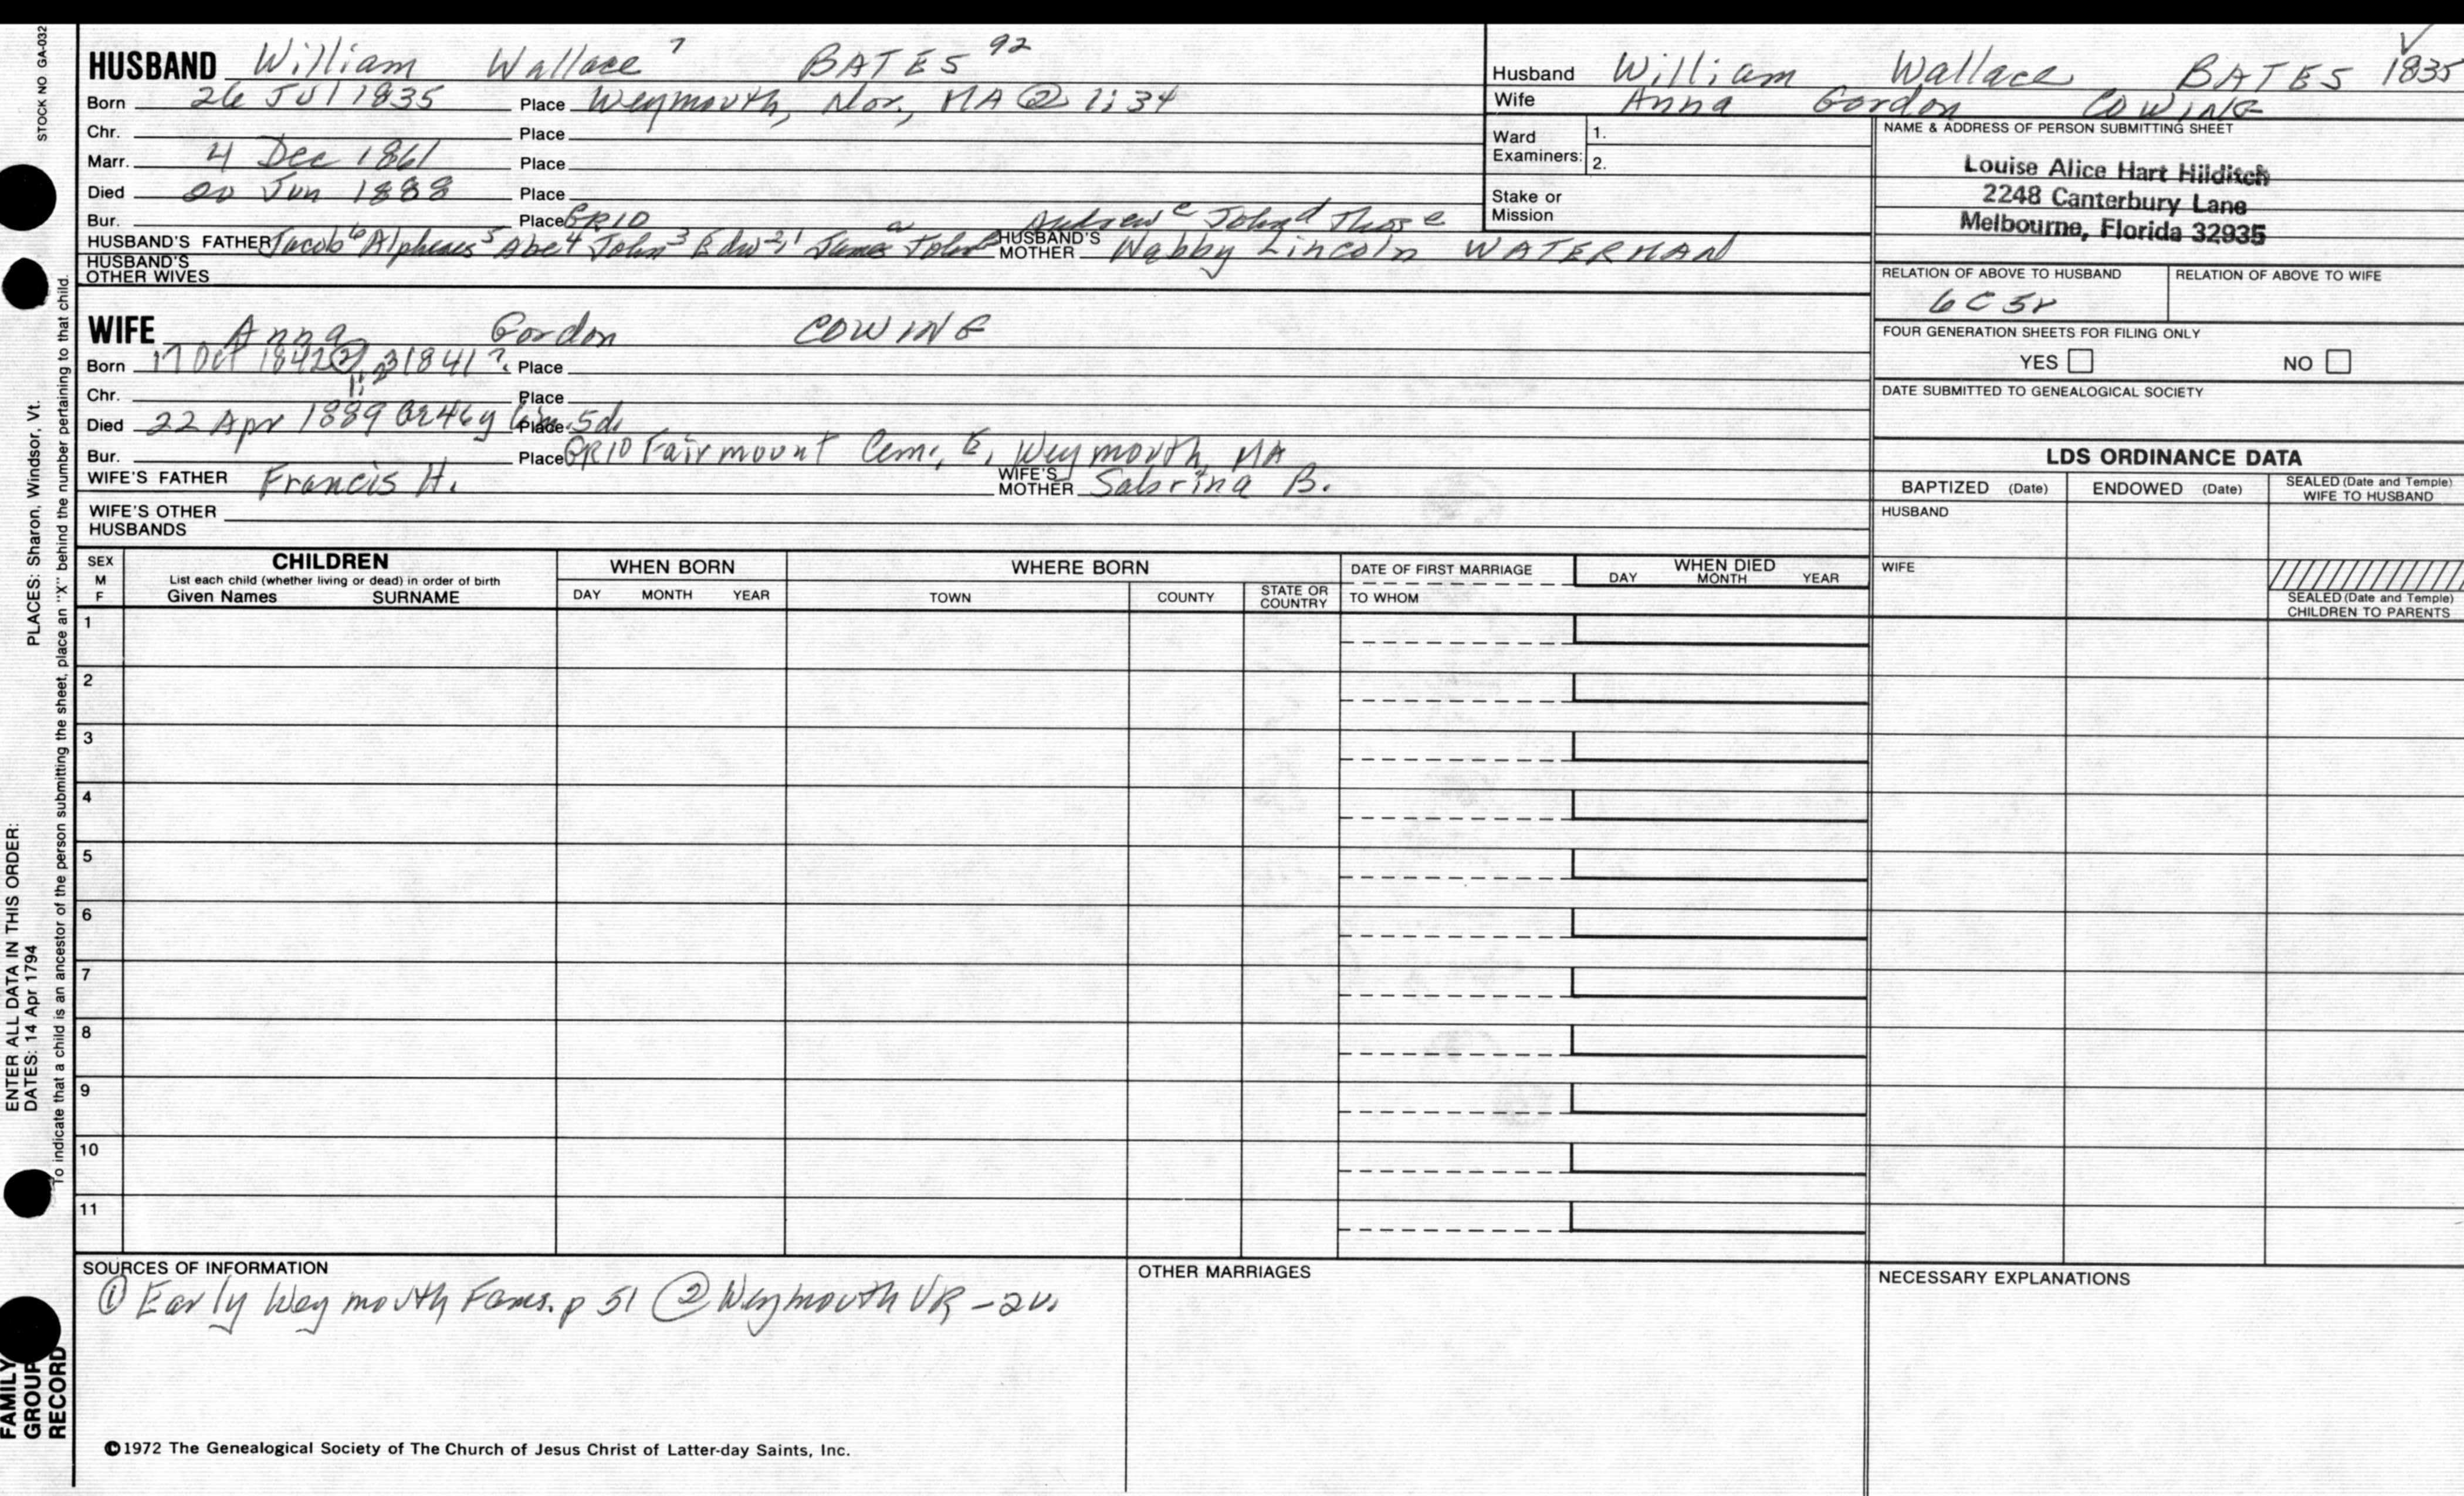 STOCK NO GA-032
HUSBAND William Wallace 7 BATES 92
Born 26 Jul 1835 Place Weymouth, Nor, MA @ 1:34
Chr. Place
Marr. 4 Dec 1861 Place
Died 20 Jun 1888 Place
Bur. Place GR10
Andrew c John d Thos e
HUSBAND'S FATHER Jacob 6 Alpheus 5 Abe 4 John 3 Edw 2,1 James a John HUSBAND'S MOTHER Nabby Lincoln WATERMAN
HUSBAND'S OTHER WIVES
Husband William Wallace BATES 1835
Wife Anna Gordon COWING
Ward Examiners: 1.
2.
Stake or Mission
NAME & ADDRESS OF PERSON SUBMITTING SHEET
Louise Alice Hart Hilditch
2248 Canterbury Lane
Melbourne, Florida 32935
RELATION OF ABOVE TO HUSBAND
6C5r
RELATION OF ABOVE TO WIFE
FOUR GENERATION SHEETS FOR FILING ONLY
YES NO
DATE SUBMITTED TO GENEALOGICAL SOCIETY
WIFE Anna Gordon COWING
Born 17 Oct 1842 ② 1841? Place
Chr. Place
Died 22 Apr 1889 46y 5d. Place
Bur. Place GR10 Fairmount Cem., E. Weymouth, MA
WIFE'S FATHER Francis H. WIFE'S MOTHER Sabrina B.
WIFE'S OTHER HUSBANDS
LDS ORDINANCE DATA
BAPTIZED (Date) ENDOWED (Date) SEALED (Date and Temple) WIFE TO HUSBAND
HUSBAND
WIFE
SEALED (Date and Temple) CHILDREN TO PARENTS
SEX M F
CHILDREN
List each child (whether living or dead) in order of birth
Given Names SURNAME
WHEN BORN
DAY MONTH YEAR
WHERE BORN
TOWN COUNTY STATE OR COUNTRY
DATE OF FIRST MARRIAGE
TO WHOM
WHEN DIED
DAY MONTH YEAR
1
2
3
4
5
6
7
8
9
10
11
SOURCES OF INFORMATION
① Early Weymouth Fams. p 51 ② Weymouth VR -
OTHER MARRIAGES
NECESSARY EXPLANATIONS
©1972 The Genealogical Society of The Church of Jesus Christ of Latter-day Saints, Inc.
ENTER ALL DATA IN THIS ORDER:
DATES: 14 Apr 1794
PLACES: Sharon, Windsor, Vt.
To indicate that a child is an ancestor of the person submitting the sheet, place an "X" behind the number pertaining to that child.
FAMILY
GROUP
RECORD